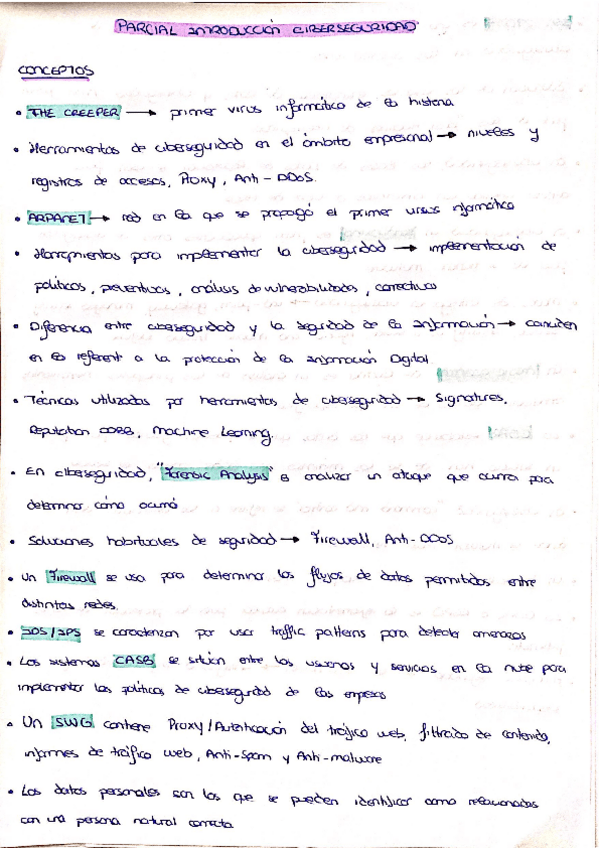 PARCIAL INTRODUCCIÓN CIBERSEGURIDAD
CONCEPTOS
• THE CREEPER → primer virus informático de la historia
• Herramientas de ciberseguridad en el ámbito empresarial → niveles y
registros de accesos, Proxy, Anti-DDoS.
• ARPANET → red en la que se propagó el primer virus informático
• Herramientas para implementar la ciberseguridad → implementación de
políticas, preventivas, análisis de vulnerabilidades, correctivas
• Diferencia entre ciberseguridad y la seguridad de la información → coinciden
en lo referent a la protección de la información Digital
• Técnicas utilizadas por herramientas de ciberseguridad → Signatures,
Reputation, Machine Learning.
• En ciberseguridad, "Forensic Analysis" es analizar un ataque que ocurra para
determinar cómo ocurrió
• Soluciones habituales de seguridad → Firewall, Anti-DDoS
• Un Firewall se usa para determinar los flujos de datos permitidos entre
distintas redes.
• IDS/IPS se caracterizan por usar traffic patterns para detectar amenazas
• Los sistemas CASB se sitúan entre los usuarios y servicios en la nube para
implementar las políticas de ciberseguridad de las empresas
• Un SWG contiene Proxy/Autenticación del tráfico web, filtrado de contenido,
informes de tráfico web, Anti-Spam y Anti-malware
• Los datos personales son los que se pueden identificar como relacionados
con una persona natural